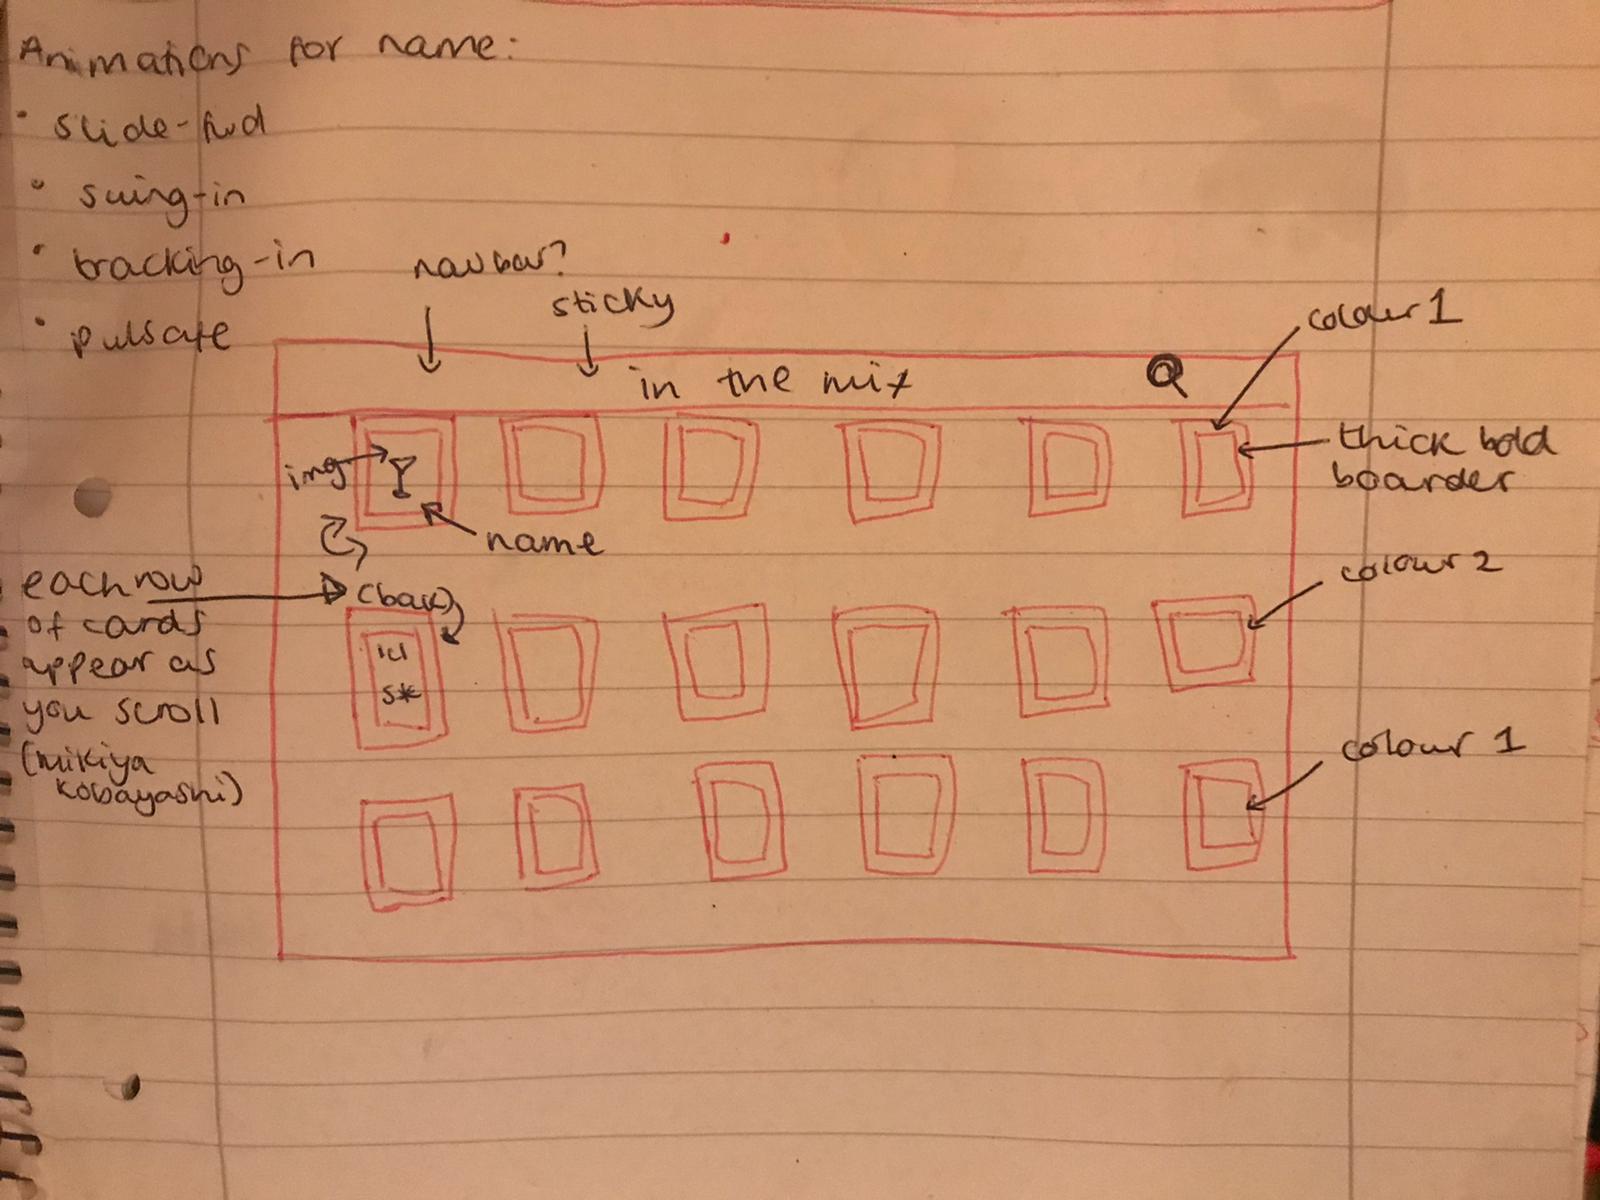 Animations for name:
• slide-fwd
• swing-in
• tracking-in
• pulsate
navbar?
sticky
in the mix
colour 1
thick bold
boarder
img
name
colour 2
each row
of cards
appear as
you scroll
(mikiya
kobayashi)
(back)
colour 1